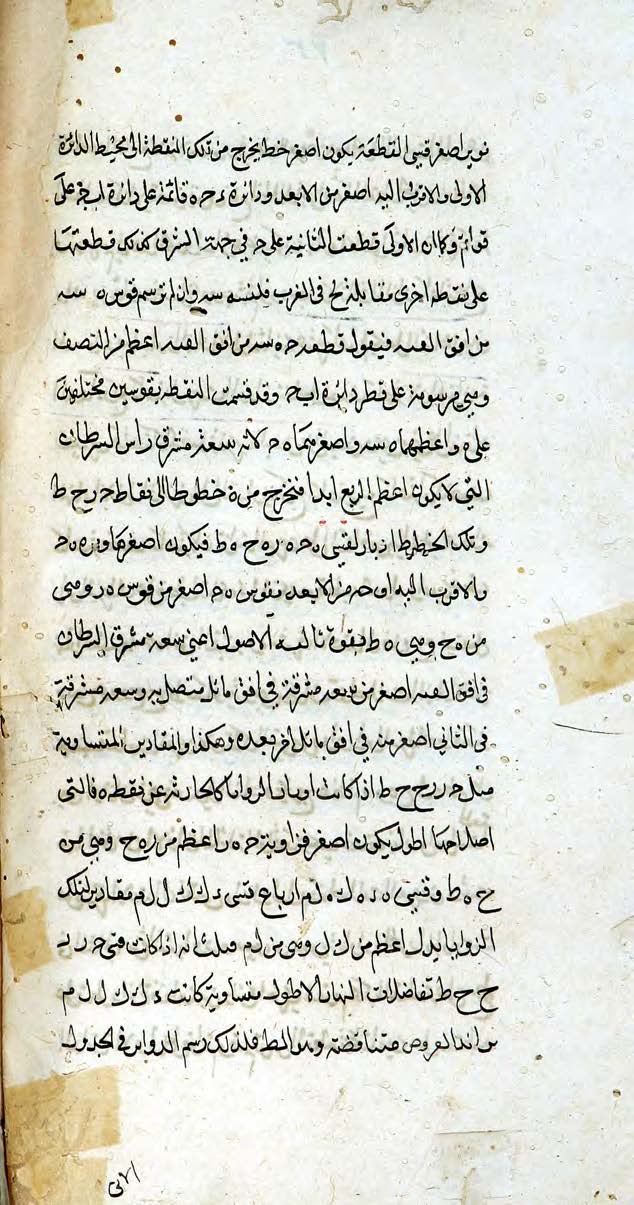 نوير اصغر قسي القطعة يكون اصغر خط يخرج من تلك النقطة الى محيط الدائرة
الاولى والاقرب اليه اصغر من الابعد ودائرة ء حـ ه قائمة على دائرة ا ب حـ على
قوائم وكما ان الاولى قطعت الثانية على حـ في جهة الشرق كذلك قطعتها
على نقطه اخرى مقابلة لح فى الغرب فلنسمه سه وان لم ترسم قوس ه سه
من افق القبه فيقول قطعه حـ ه سه من افق القبه اعظم من النصف
وهي مرسومة على قطر دائرة ا ب حـ وقد قسمت النقطه بقوسين مختلفين
على ه واعظمهما ه سه واصغرهما ه حـ لانه سعة مشرق راس السرطان
التي لا يكون اعظم الربع ابدا فنخرج من ه خطوطا الى نقاط حـ ر ح ط
وتلك الخطوط اوتار لقسي ه حـ ه ر ه ح ه ط فيكون اصغرها وتر ه حـ
والاقرب اليه اوحـ من الابعد فقوس ه حـ اصغر من قوس ه ر وهي
من ه ح وهي ه ط فبقوة ثالثة الاصول اعني سعة مشرق السرطان
فى افق القبه اصغر من سعه مشرقة في افق مائل متصل به وسعه مشرقة
فى الثاني اصغر منه في افق مائل اخر بعده وهكذا والمقادير المتساوية
مثل حـ ر ر ح ح ط اذا كانت اوتار الزوايا كالحادثة عن نقطه ه فالتى
اضلاعها اطول يكون اصغر فزاوية حـ ه ر اعظم من ر ه ح وهي من
ح ه ط وقسي ه ء ه ك ه ل م ارباع قسى ء ك ك ل ل م مقادير لتلك
الزوايا بدل اعظم من ك ل وهى من ل م فبان انه اذا كانت قسى حـ ر ر
ح ح ط تفاضلات النهار الاطول متساوية كانت ء ك ك ل ل م
تزايد العروض متناقصة وهو المط فلذلك رسم الدواير فى الجدول